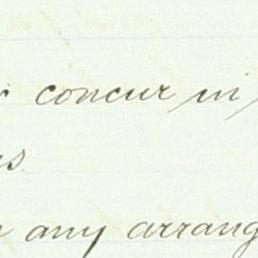 concur in
any arrang